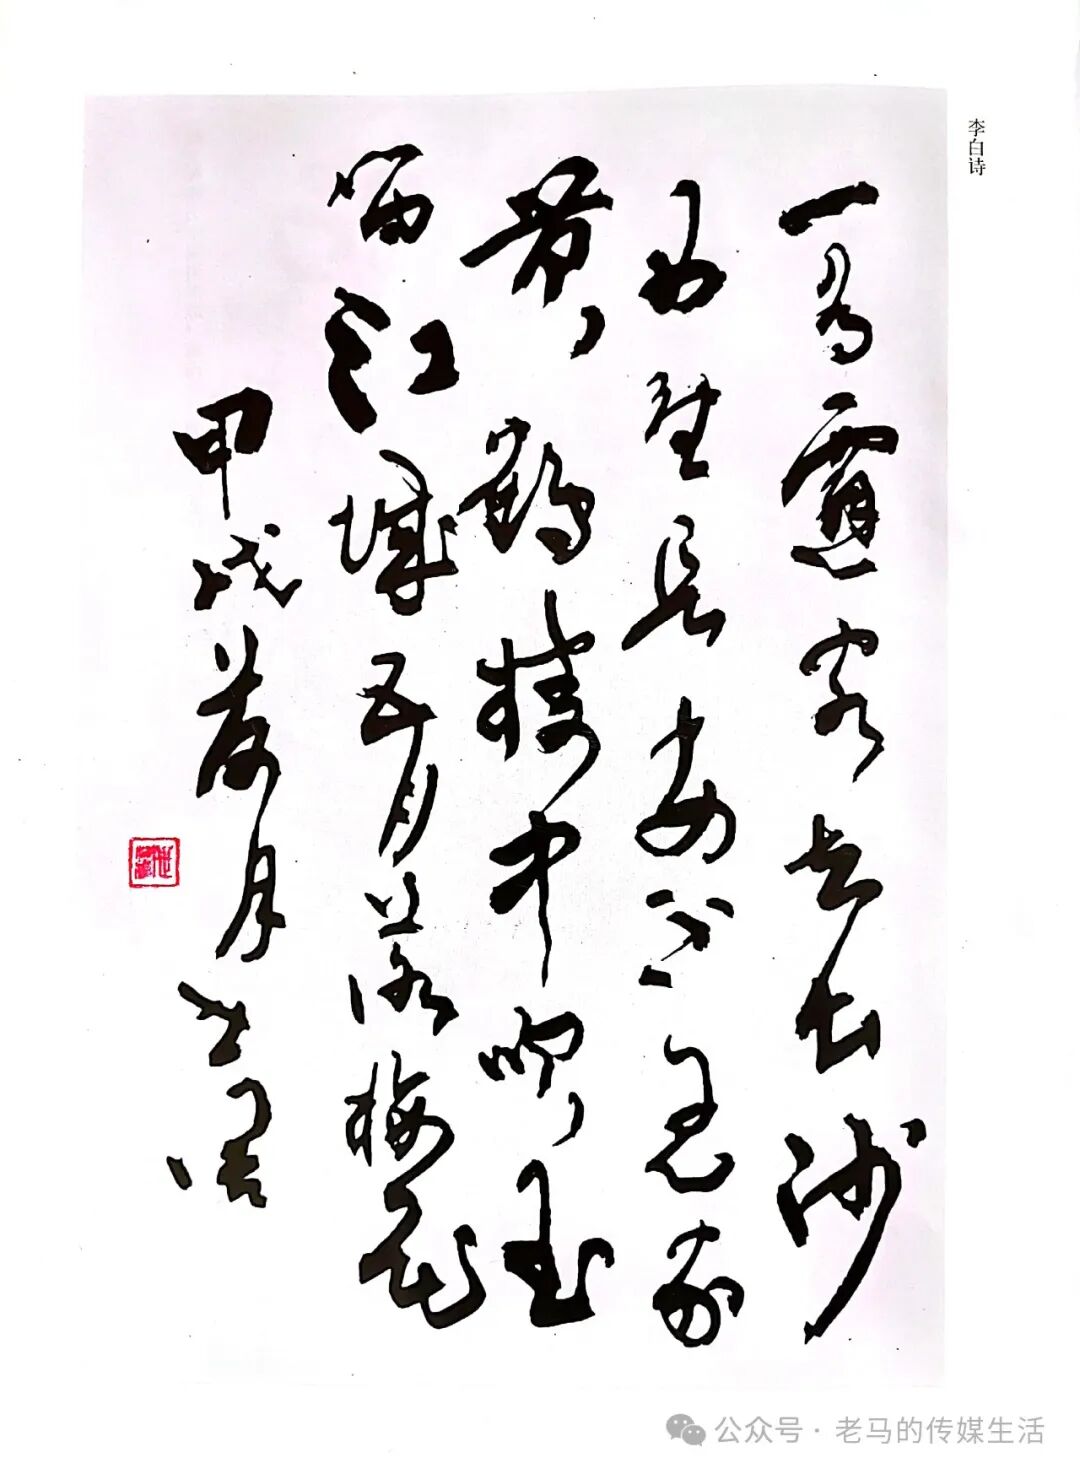 李白诗
一为遷客去长沙
西望长安不见家
黄鹤楼中吹玉
笛江城五月落梅花
甲戌 月
公众号 · 老马的传媒生活